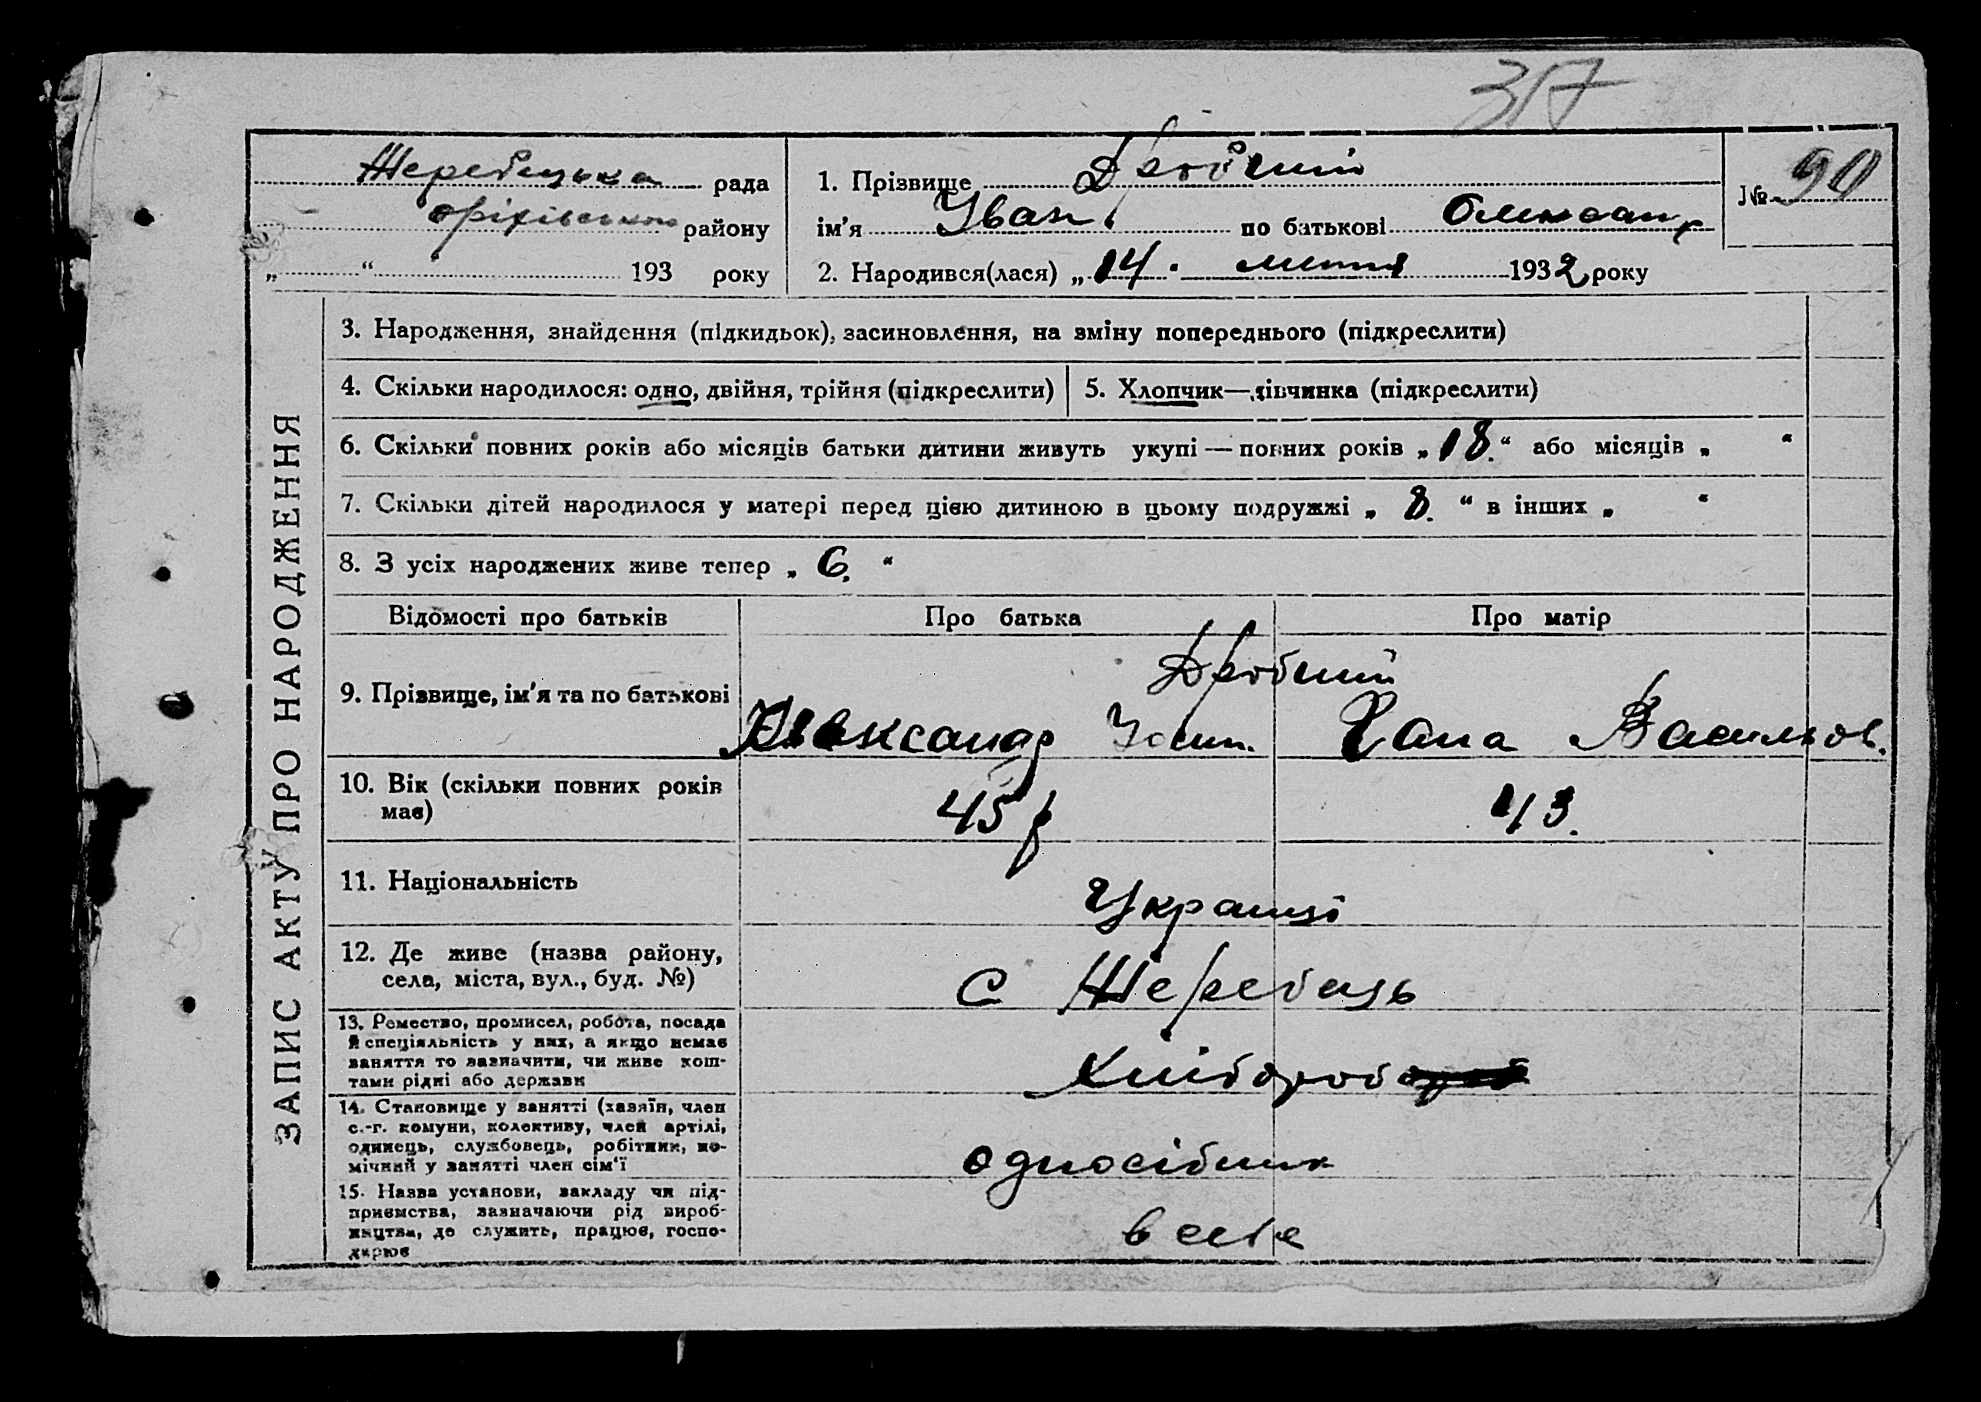 317
Жеребецька рада
Оріхівського району
„ “ 193 року
1. Прізвище Дробний
ім'я Іван по батькові Олексан
2. Народився(лася) „14. 1932 року
№ 90
ЗАПИС АКТУ ПРО НАРОДЖЕННЯ
3. Народження, знайдення (підкидьок), засиновлення, на зміну попереднього (підкреслити)
4. Скільки народилося: одно, двійня, трійня (підкреслити)
5. Хлопчик—дівчинка (підкреслити)
6. Скільки повних років або місяців батьки дитини живуть укупі — повних років „18.“ або місяців „ “
7. Скільки дітей народилося у матері перед цією дитиною в цьому подружжі „ 8. “ в інших „ “
8. З усіх народжених живе тепер „ 6. “
Відомості про батьків Про батька Про матір
Дробний
9. Прізвище, ім'я та по батькові
Олександр Йосип. Гана Васильов.
10. Вік (скільки повних років
має)
45 р 43.
11. Національність
Українці
12. Де живе (назва району,
села, міста, вул., буд. №)
с Жеребець
13. Ремество, промисел, робота, посада
й спеціяльність у них, а якщо немає
заняття то зазначити, чи живе кош-
тами рідні або держави
Хлібороб
14. Становище у занятті (хазяїн, член
с.-г. комуни, колективу, член артілі,
одинець, службовець, робітник, по-
мічний у занятті член сім'ї
односібник
15. Назва установи, закладу чи під-
приємства, зазначаючи рід вироб-
ництва, де служить, працює, госпо-
дарює
в селе